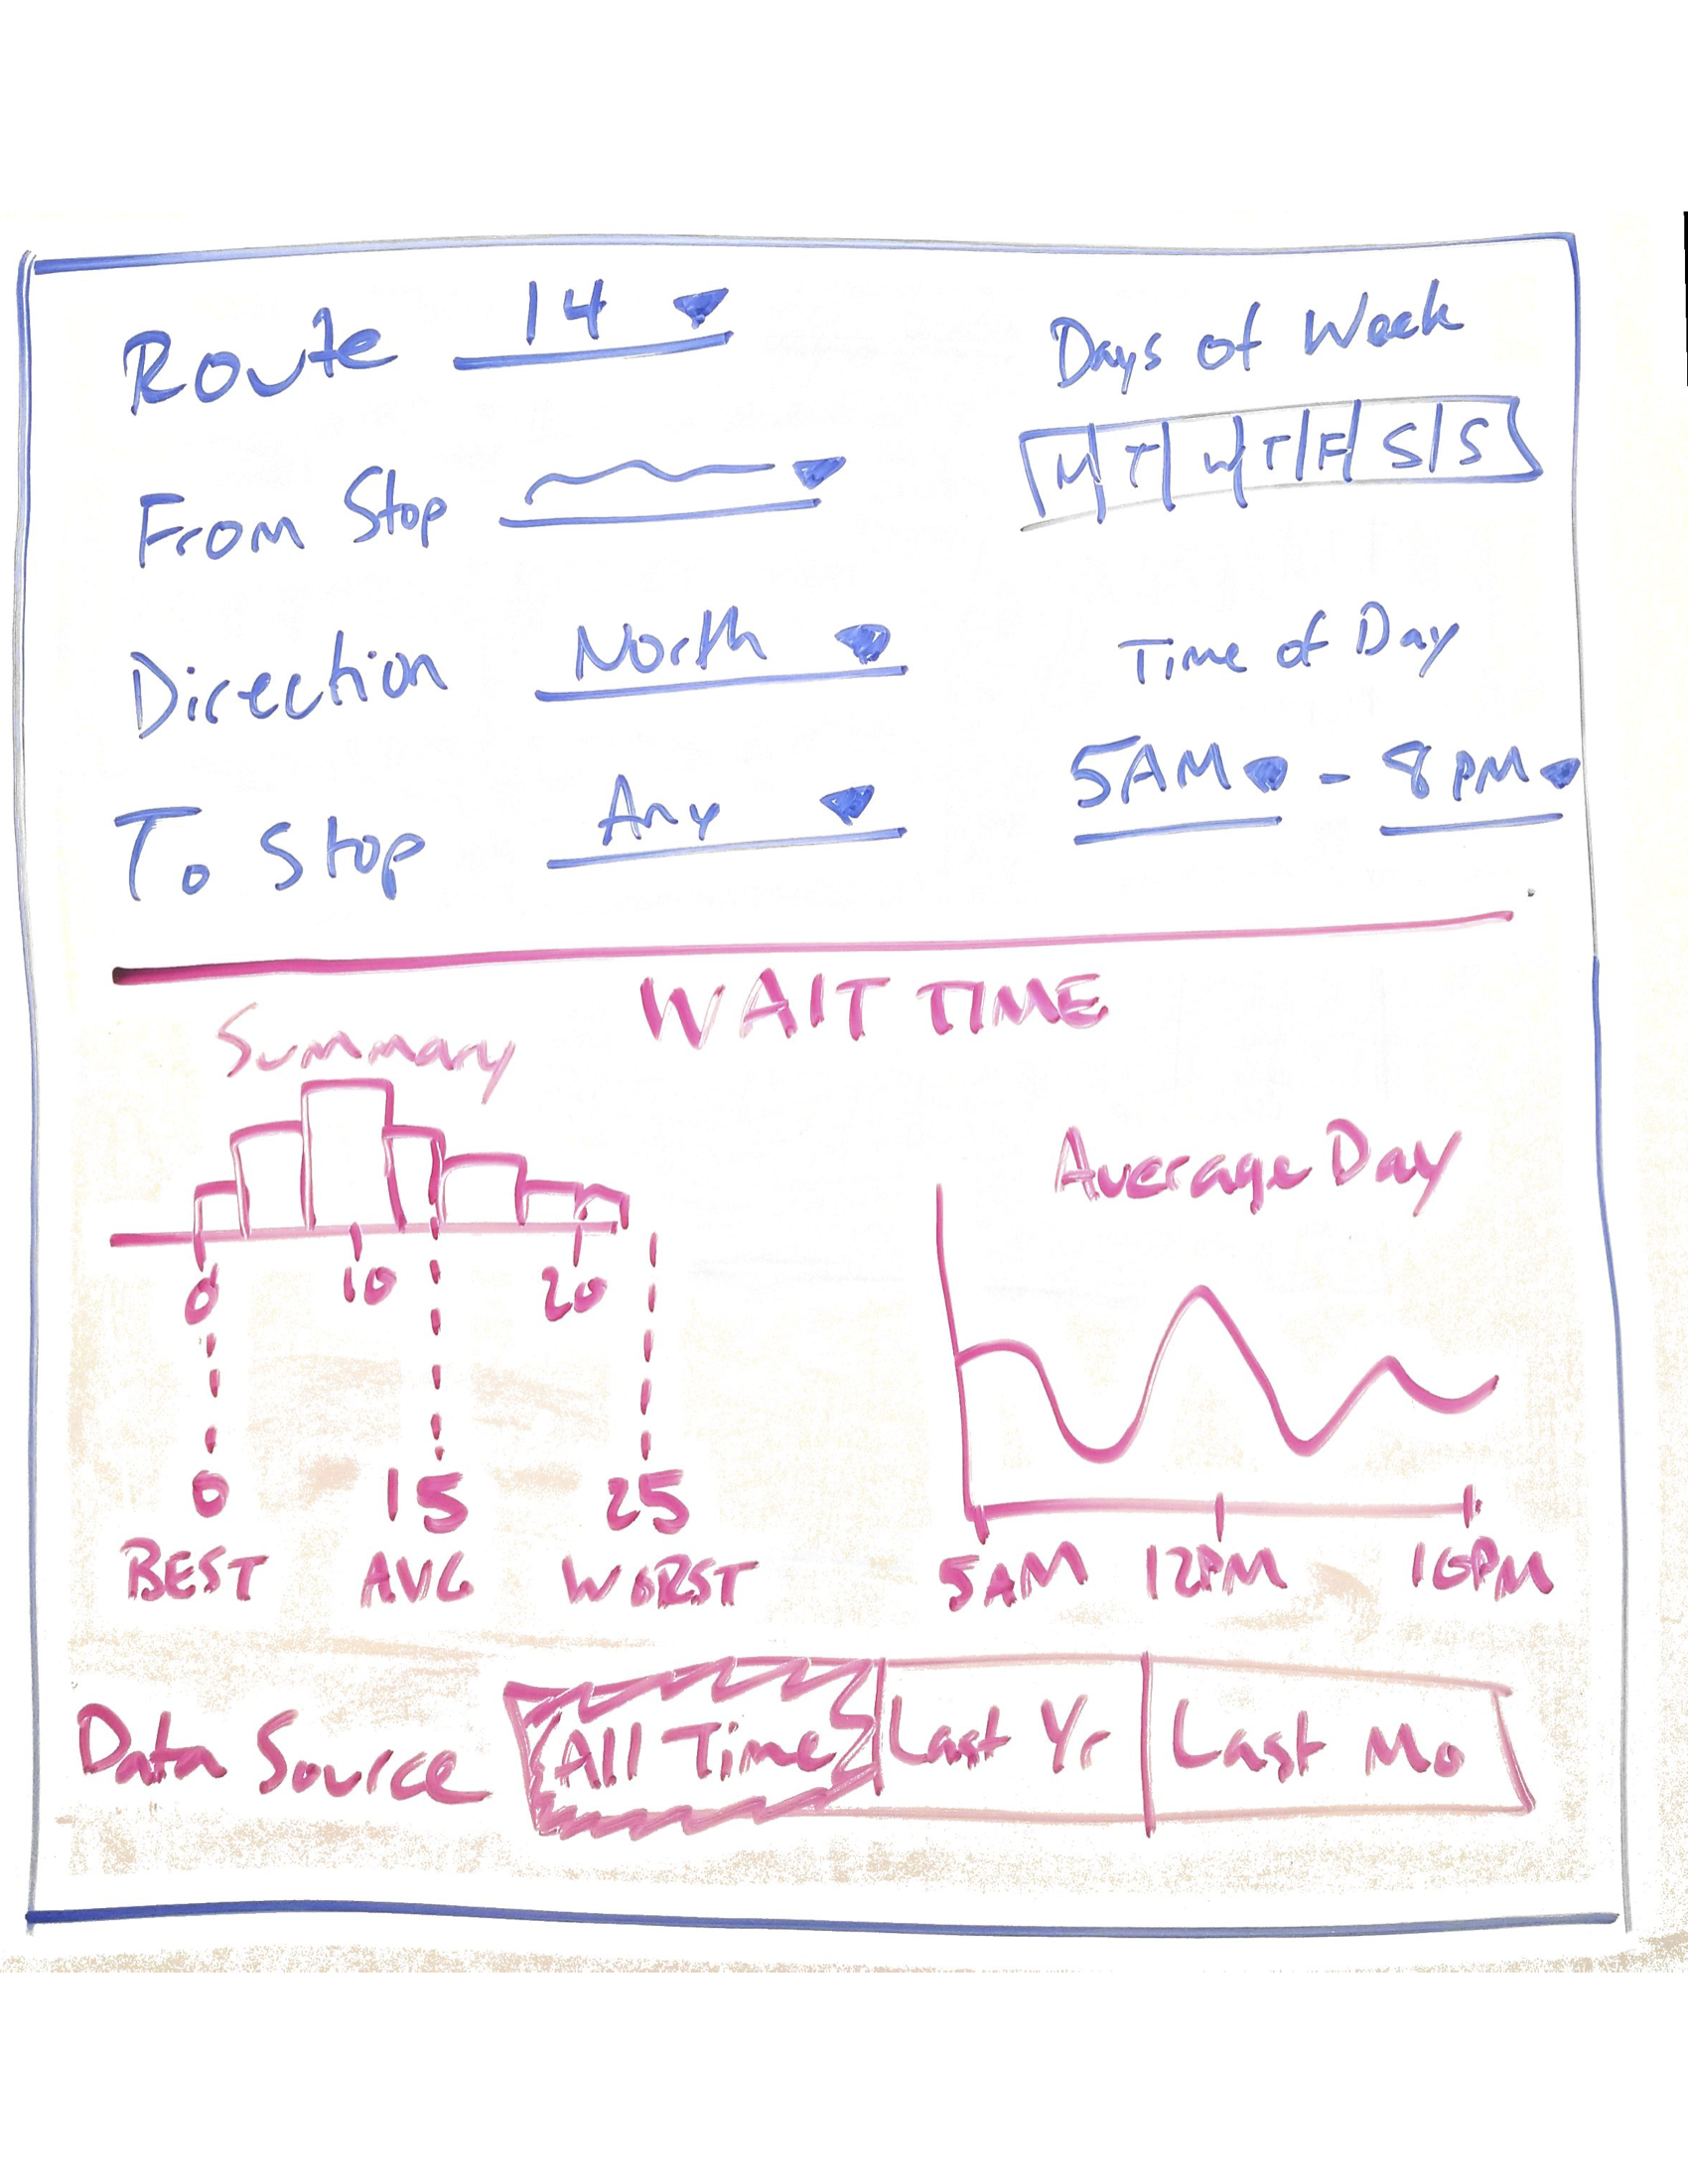 Route 14
From Stop
Direction North
To Stop Any
Days of Week
M T W T F S S
Time of Day
5AM - 8PM
WAIT TIME
Summary
0 10 20
0 15 25
BEST AVG WORST
Average Day
5AM 12PM 10PM
Data Source All Time Last Yr Last Mo